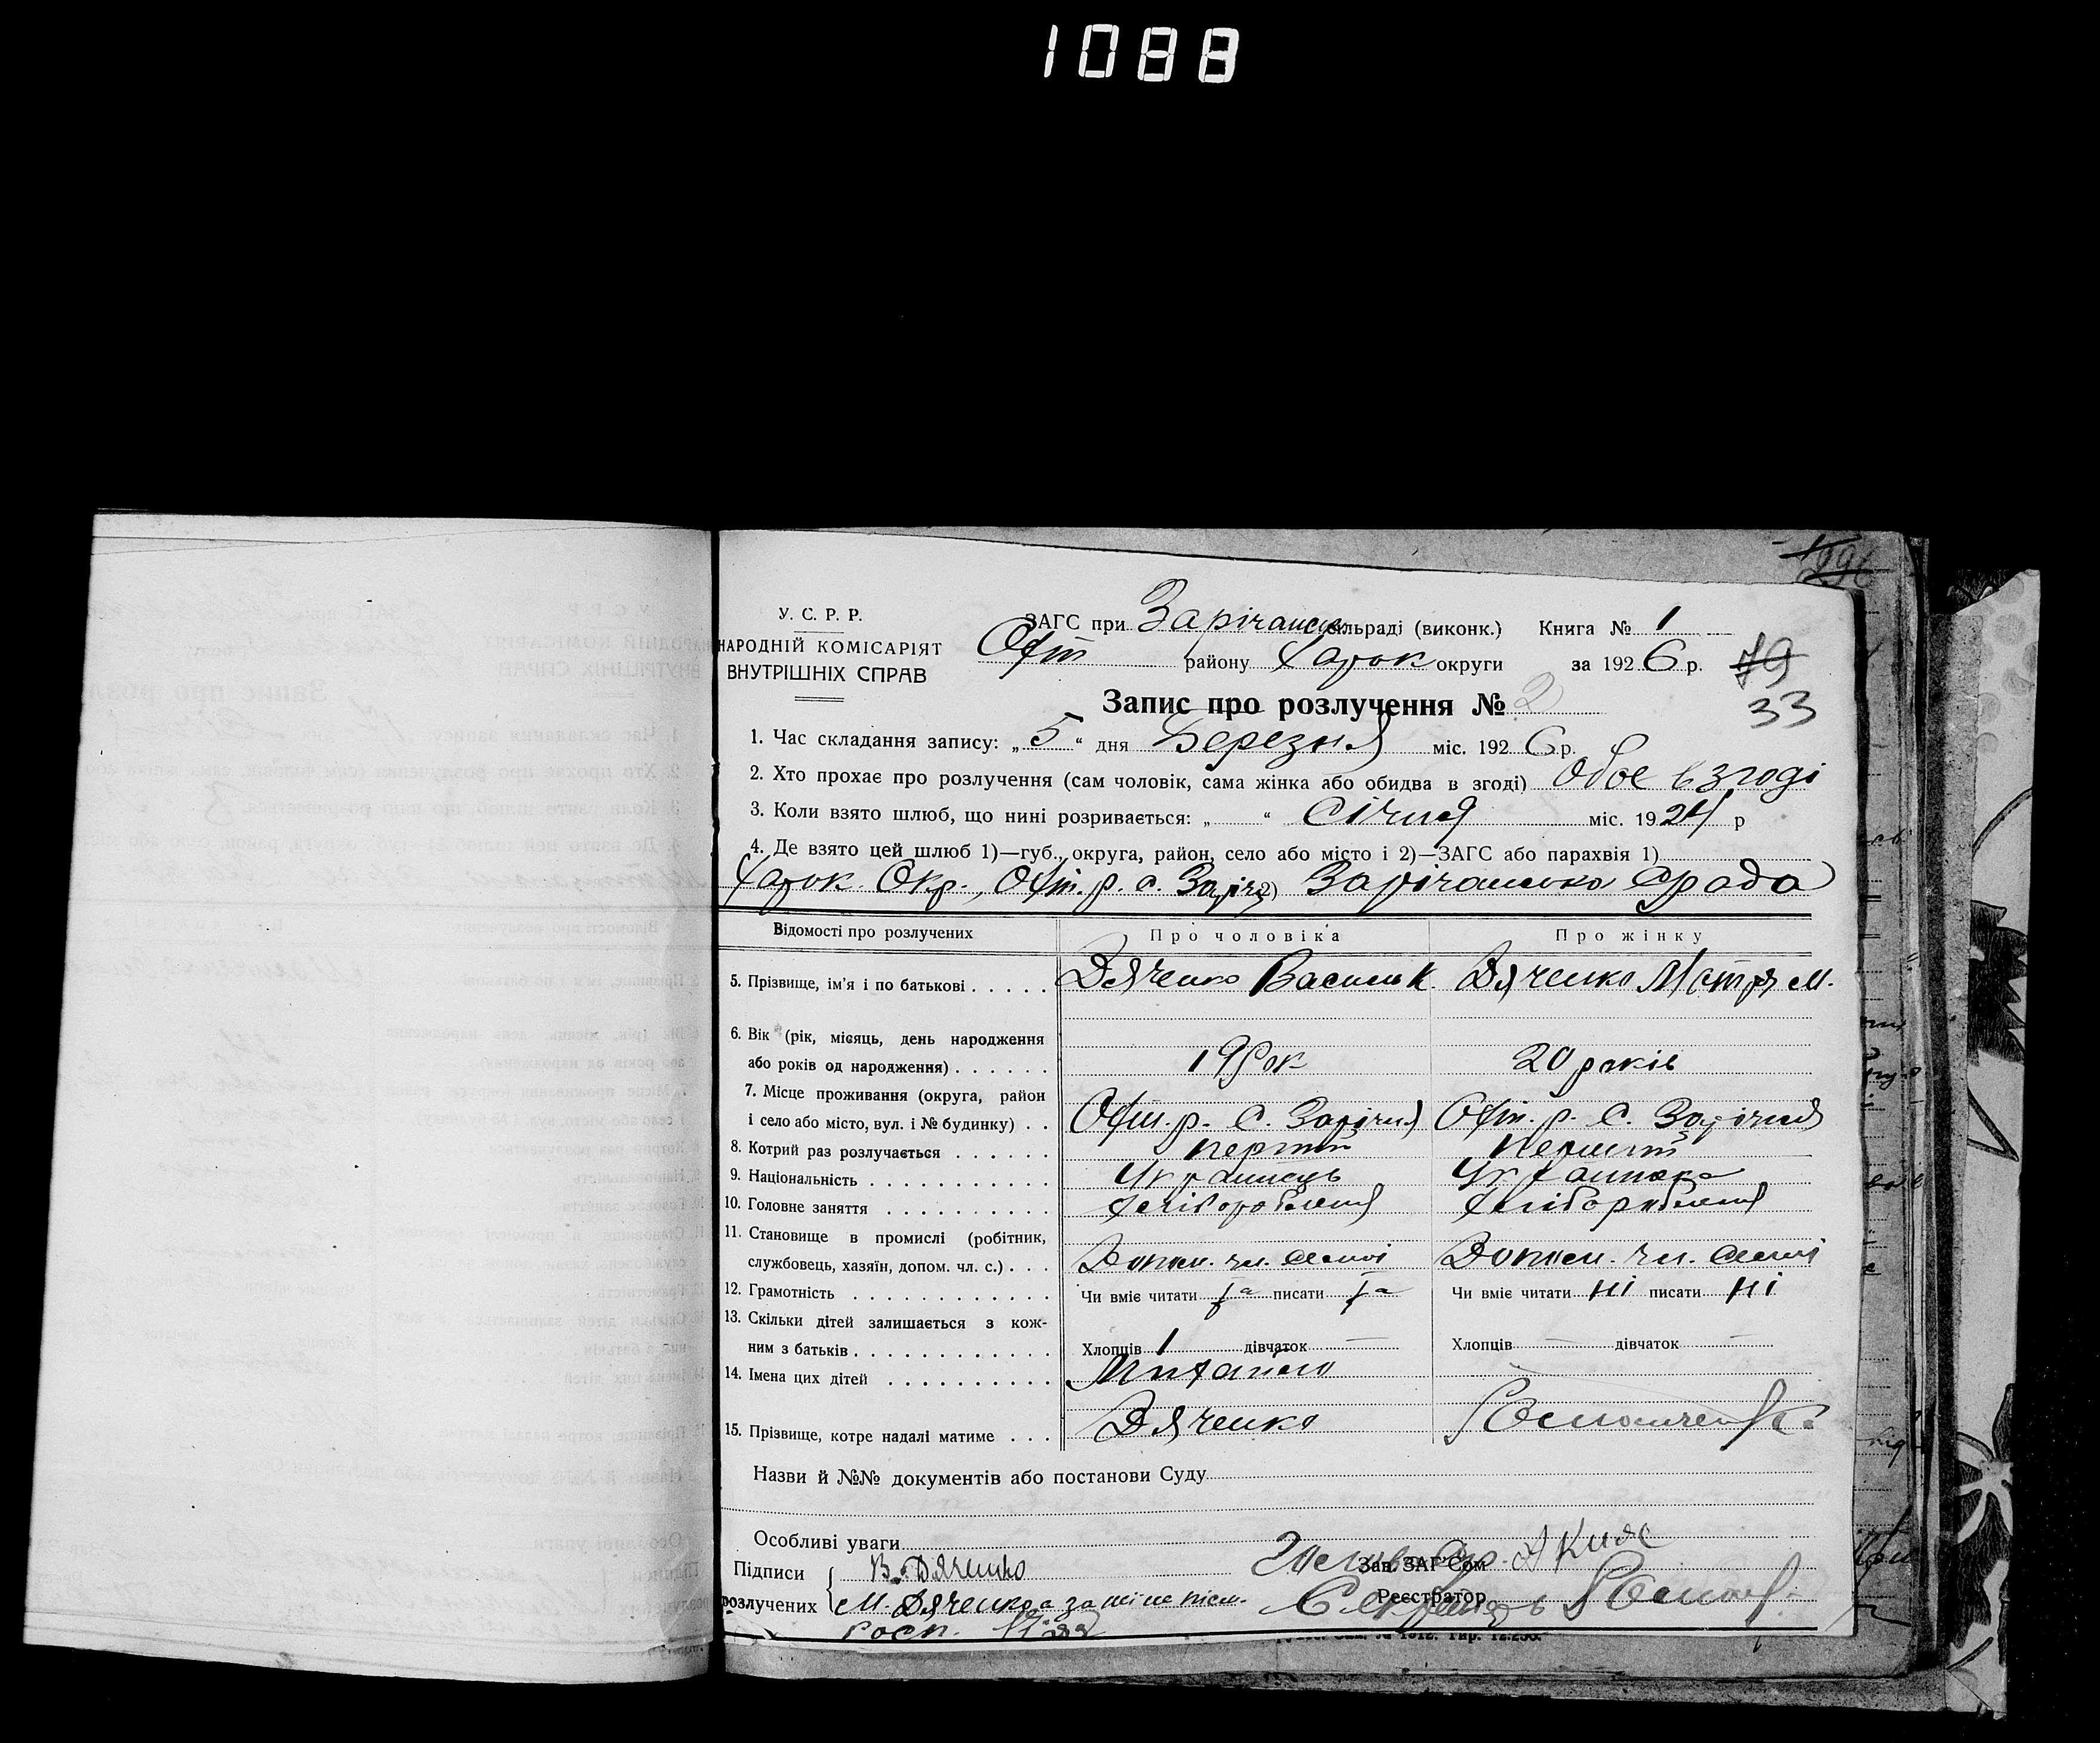 1088
У. С. Р. Р.
НАРОДНІЙ КОМІСАРІЯТ
ВНУТРІШНІХ СПРАВ
ЗАГС при Зарічанськ сільраді (виконк.) Книга № 1
Охт району Харок округи за 1926 р.
79
33
Запис про розлучення № 2
1. Час складання запису: „5“ дня Березня міс. 1926 р.
2. Хто прохає про розлучення (сам чоловік, сама жінка або обидва в згоді) Обое в згоді
3. Коли взято шлюб, що нині розривається: „ “ Січня міс. 1924 р
4. Де взято цей шлюб 1)—губ., округа, район, село або місто і 2)—ЗАГС або парахвія 1)
Харок. Окр., Охт. р. с. Заріч 2) Зарічанська срада
Відомості про розлучених Про чоловіка Про жінку
5. Прізвище, ім'я і по батькові . . . . . Дяченко Василь К. Дяченко Мотря М.
6. Вік (рік, місяць, день народження
або років од народження) . . . . . . 19 рок 20 років
7. Місце проживання (округа, район
і село або місто, вул. і № будинку) . . Охт. р. с. Зарічня Охт. р. с. Зарічня
8. Котрий раз розлучається . . . . . . перший перший
9. Національність . . . . . . . . . . . Українець Українка
10. Головне заняття . . . . . . . . . . хліборобленя хліборобленя
11. Становище в промислі (робітник,
службовець, хазяїн, допом. чл. с.) . . . Допом. чл. семьі Допом. чл. семьі
12. Грамотність . . . . . . . . . . . . Чи вміє читати так писати так Чи вміє читати ні писати ні
13. Скільки дітей залишається з кож-
ним з батьків . . . . . . . . . . . . Хлопців 1 дівчаток — Хлопців — дівчаток —
14. Імена цих дітей . . . . . . . . . . Михайло
15. Прізвище, котре надалі матиме . . . Дяченко
Назви й №№ документів або постанови Суду
Особливі уваги
Підписи
розлучених
В. Дяченко
М. Дяченко а за ні не пісм.
росп.
Зав. ЗАГ'Сом
Реєстратор Секретарь